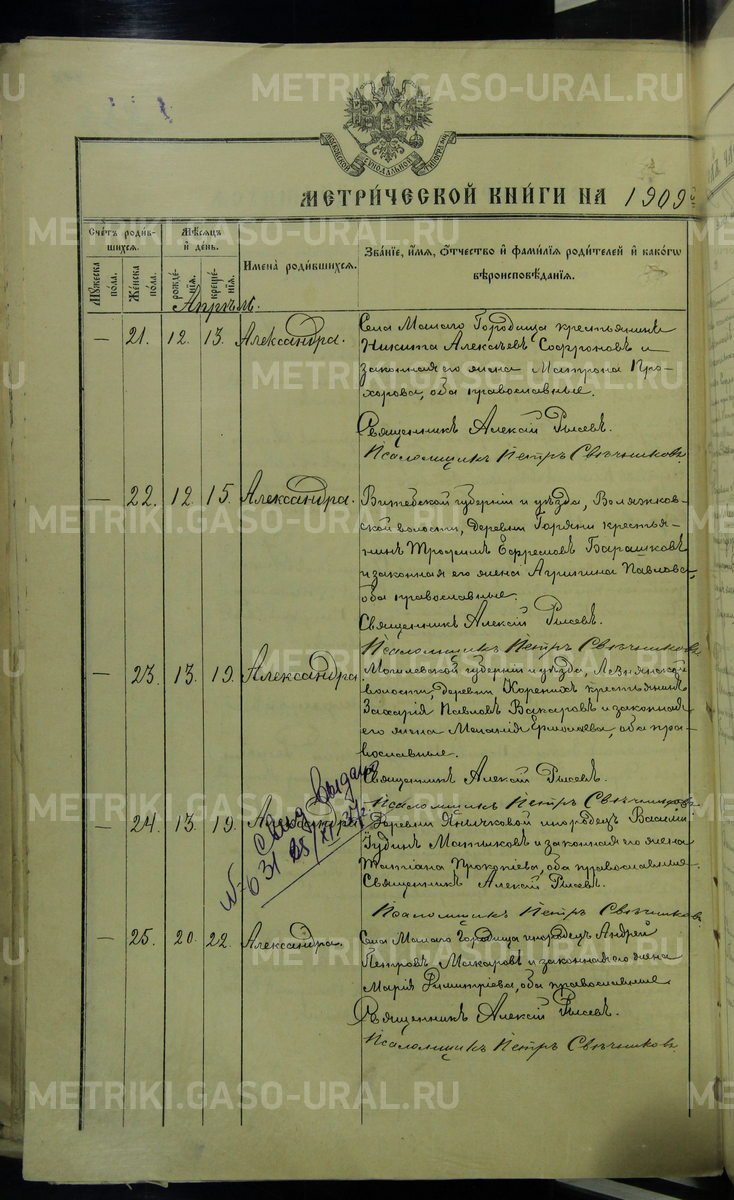 METRIKI.GASO-URAL.RU
МОСКОВСКОЙ СѴНОДАЛЬНОЙ ТИПОГРАФІИ
МЕТРИ́ЧЕСКОЙ КНИ́ГИ НА 1909
Сче́тъ роди́в-
шихсѧ.
Мѣ́сѧцъ
и҆ де́нь.
Мꙋ́жеска по́ла.
Же́нска по́ла.
рожде́-нїѧ.
креще́-нїѧ.
И҆мена̀ роди́вшихсѧ.
Зва́нїе, и҆́мѧ, ѻ҆́тчество и҆ фами́лїѧ роди́телей и҆ како́гѡ
вѣроисповѣ́данїѧ.
Апрѣль.
— 21. 12. 13. Александра.
Села Малаго Городища крестьянинъ
Никита Алексѣевъ Софроновъ и
законная его жена Матрона Про-
хорова, оба православные.
Священникъ Алексій
Псаломщикъ Петръ Свѣчниковъ
— 22. 12. 15. Александра.
Витебской губерніи и уѣзда,
ской волости, деревни Горяни крестья-
нинъ Трофимъ Ефремовъ Барашковъ
и законная его жена Агрипина Павлова
оба православные.
Священникъ Алексій
Псаломщикъ Петръ Свѣчниковъ
— 23. 13. 19. Александра
Могилевской губерніи и уѣзда,
волости, деревни крестьянинъ
Захарія Павловъ и законная
его жена Меланія Ермолаева, оба пра-
вославные.
Священникъ Алексій
Псаломщикъ Петръ Свѣчниковъ
— 24. 13. 19. Александра
Деревни Янычковой инородецъ Василій
и законная его жена
Татіана Прокопіева, оба православные.
Священникъ Алексій
Псаломщикъ Петръ Свѣчниковъ
№ 631
— 25. 20. 22. Александра.
Села Малаго Городища инородецъ Андрей
Петровъ Макаровъ и законная его жена
Марія Димитріева, оба православные
Священникъ Алексій
Псаломщикъ Петръ Свѣчниковъ